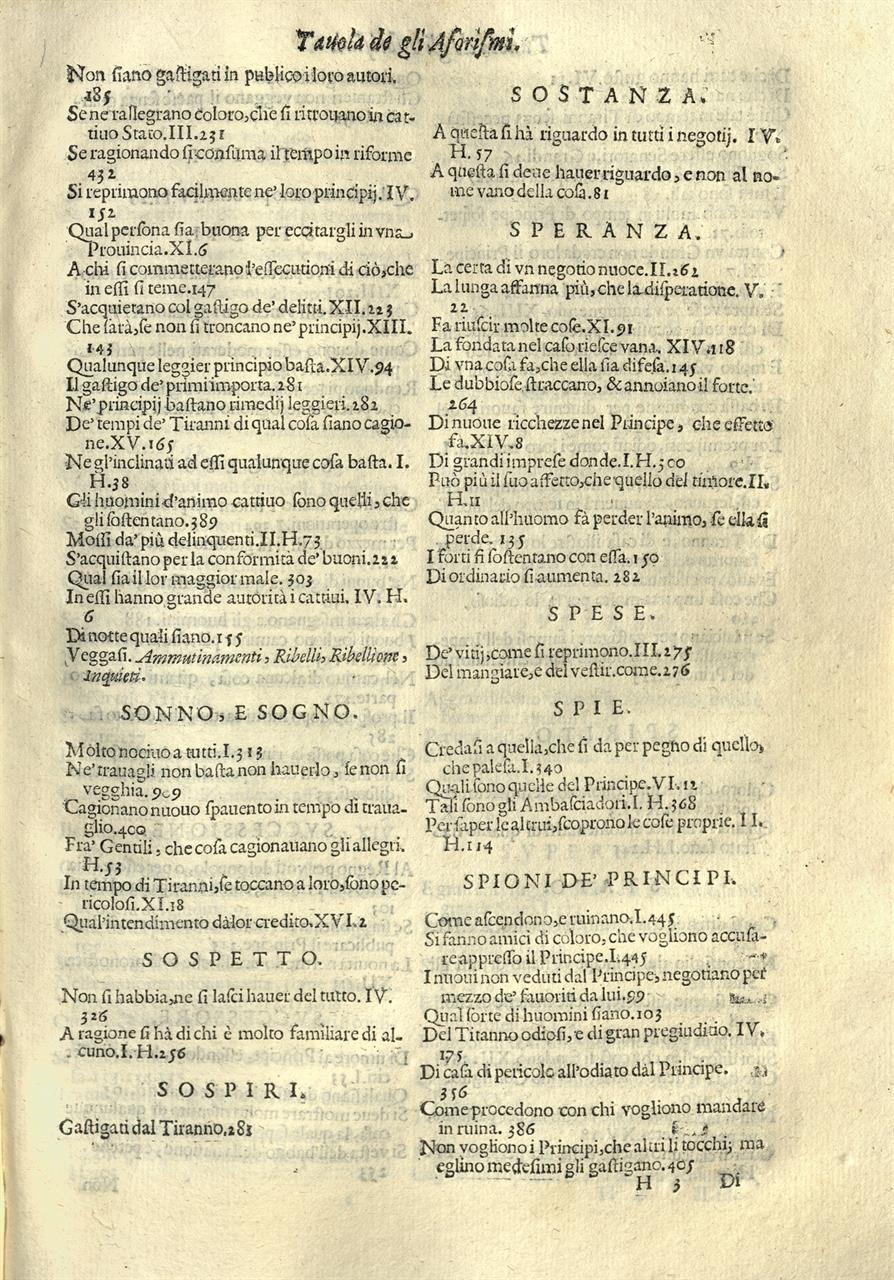 Tauola de gli Aforiſmi.
Non ſiano gaſtigati in publico i loro autori.
185
Se ne rallegrano coloro, che ſi ritrouano in cat-
tiuo Stato. III. 231
Se ragionando ſi conſuma il tempo in riforme
432
Si reprimono facilmente ne' loro principij. IV.
152
Qual perſona ſia buona per eccitargli in vna
Prouincia. XI. 6
A chi ſi commetterano l'eſſecutioni di ciò, che
in eſſi ſi teme. 147
S'acquietano col gaſtigo de' delitti. XII. 223
Che ſarà, ſe non ſi troncano ne' principij. XIII.
143
Qualunque leggier principio baſta. XIV. 94
Il gaſtigo de' primi importa. 281
Ne' principij baſtano rimedij leggieri. 282
De' tempi de' Tiranni di qual coſa ſiano cagio-
ne. XV. 165
Ne gl'inclinati ad eſſi qualunque coſa baſta. I.
H. 38
Gli huomini d'animo cattiuo ſono quelli, che
gli ſoſtentano. 389
Moſſi da' più delinquenti. II. H. 73
S'acquiſtano per la conformità de' buoni. 222
Qual ſia il lor maggior male. 303
In eſſi hanno grande autorità i cattiui. IV. H.
6
Di notte quali ſiano. 155
Veggaſi. Ammutinamenti, Ribelli, Ribellione,
Inquieti.
SONNO, E SOGNO.
Molto nociuo a tutti. I. 313
Ne' trauagli non baſta non hauerlo, ſe non ſi
vegghia. 909
Cagionano nuouo ſpauento in tempo di traua-
glio. 400
Fra' Gentili, che coſa cagionauano gli allegri.
H. 53
In tempo di Tiranni, ſe toccano a loro, ſono pe-
ricoloſi. XI. 18
Qual'intendimento dà lor credito. XVI. 2
SOSPETTO.
Non ſi habbia, ne ſi laſci hauer del tutto. IV.
326
A ragione ſi hà di chi è molto familiare di al-
cuno. I. H. 256
SOSPIRI.
Gaſtigati dal Tiranno. 281
SOSTANZA.
A queſta ſi hà riguardo in tutti i negotij. IV.
H. 57
A queſta ſi deue hauer riguardo, e non al no-
me vano della coſa. 81
SPERANZA.
La certa di vn negotio nuoce. II. 262
La lunga affanna più, che la diſperatione. V.
22
Fa riuſcir molte coſe. XI. 91
La fondata nel caſo rieſce vana. XIV. 118
Di vna coſa fa, che ella ſia difeſa. 145
Le dubbioſe ſtraccano, & annoiano il forte.
264
Di nuoue ricchezze nel Principe, che effetto
fà. XIV. 8
Di grandi impreſe donde. I. H. 300
Può più il ſuo affetto, che quello del timore. II.
H. 11
Quanto all'huomo fà perder l'animo, ſe ella ſi
perde. 135
I forti ſi ſoſtentano con eſſa. 150
Di ordinario ſi aumenta. 282
SPESE.
De' vitij, come ſi reprimono. III. 275
Del mangiare, e del veſtir. come. 276
SPIE.
Credaſi a quella, che ſi da per pegno di quello,
che paleſa. I. 340
Quali ſono quelle del Principe. VI. 12
Tali ſono gli Ambaſciadori. I. H. 368
Per ſaper le altrui, ſcoprono le coſe proprie. II.
H. 114
SPIONI DE' PRINCIPI.
Come aſcendono, e ruinano. I. 445
Si fanno amici di coloro, che vogliono accuſa-
re appreſſo il Principe. I. 445
I nuoui non veduti dal Principe, negotiano per
mezzo de' fauoriti da lui. 99
Qual ſorte di huomini ſiano. 103
Del Tiranno odioſi, e di gran pregiuditio. IV.
175
Di caſa di pericolo all'odiato dal Principe.
356
Come procedono con chi vogliono mandare
in ruina. 386
Non vogliono i Principi, che altri li tocchi; ma
eglino medeſimi gli gaſtigano. 405
H 3 Di